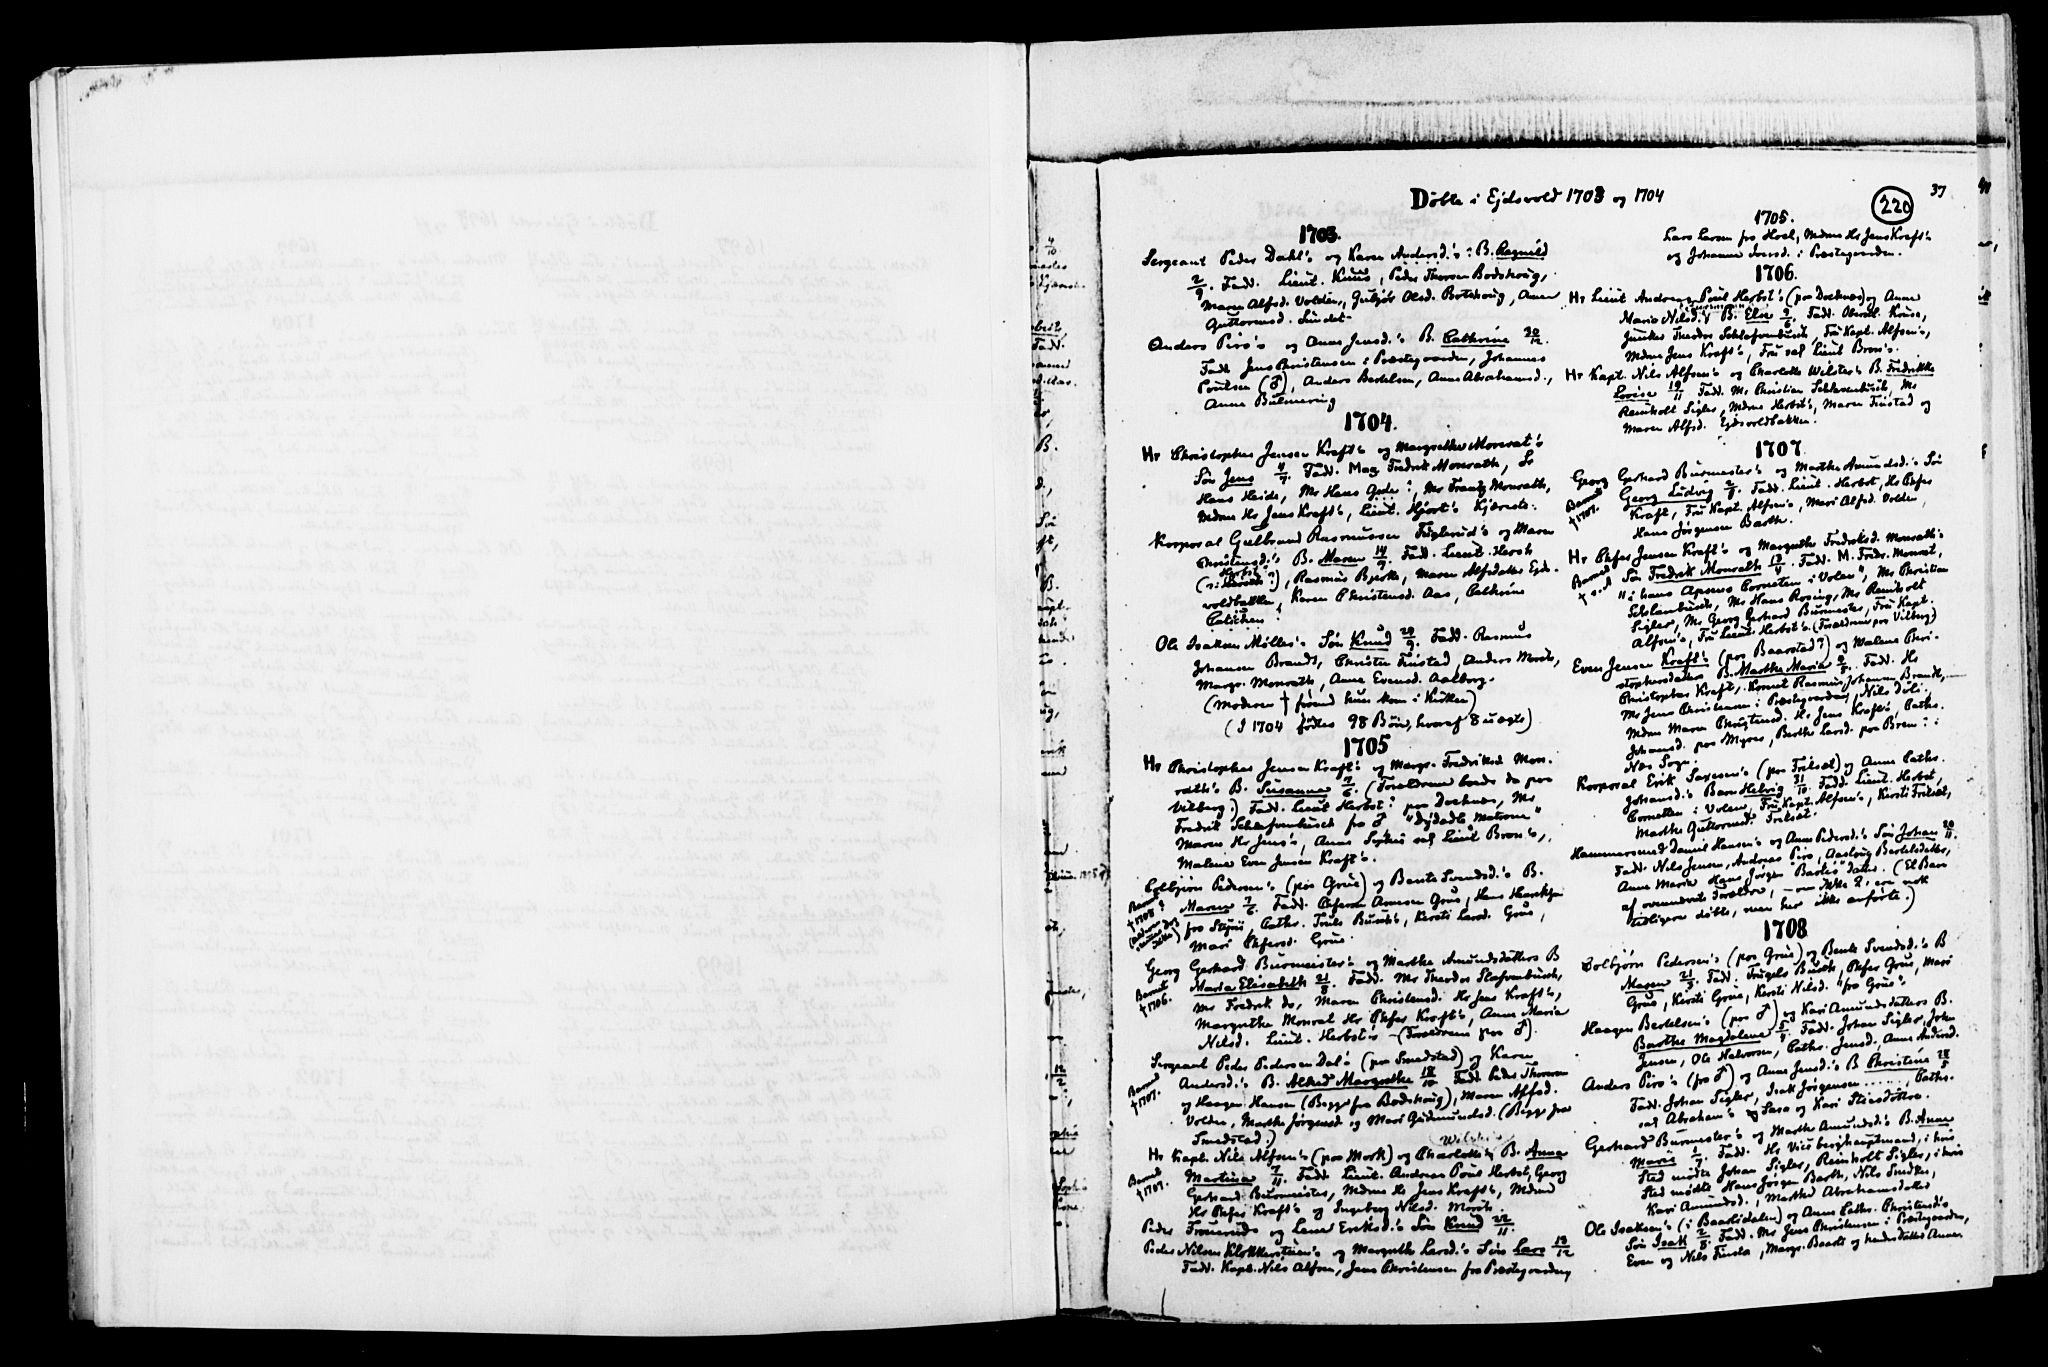 Døbte i Ejdsvold 1703 og 1704
220
37
1703.
Sergeant Peder Dahl's og Karen Andersd.'s ? B. Ragnild
2/9. Fadd. Lieut. Knus, Peder Thoresen Bodshoug,
Maren Alfsd. Volden, Gubjør Olsd. Botshoug, Anne
Guttormsd. Lindet
Anders Piro's og Anne Jensd.'s B. Cathrine 30/12.
Fadd. Jens Christensen i Præstegaarden, Johannes
Poulsen (♂), Anders Bertelsen, Anne Abrahamsd.,
Anne Bulmering
1704.
Hr Christopher Jensen Kraft's og Margrethe Monrat's
Søn Jens 4/7. Fadd. Mag Fredrik Monrath, Sr
Hans Heide, Mr Hans Gude ?, Mr Frantz Monrath,
Mdme Hr Jens Kraft's, Lieut. Hjort's Kjæreste.
Korporal Gulbrand Rasmussen Fuglerud's og Maren
Christensd.'s B. Maren 14/9. Fadd. Lieut. Hersh
(: Herbst ?), Rasmus Bjerke, Maren Alfsdatter Ejds-
voldbakken, Karen Christensd. Aas, Cathrine
Ole Isaksen Møller's Søn Knud 29/9. Fadd. Rasmus
Johansen Brandt, Christen Finstad, Anders Morch,
Margr. Monrath, Anne Evensd. Aalborg.
(Moderen † førend hun kom i Kirken)
(I 1704 fødtes 98 Børn, hvoraf 8 uægte)
1705
Hr Christopher Jensen Kraft's og Margr. Fredriksd. Mon-
rath's B. Susanne 7/6. (Forældrene boede da paa
Vilberg.) Fadd. Lieut Herbst ? paa Doknes, Mr
Fredrik Schlafenbusch fra ♂ "Dydædle Matrone"
Maren Hr Jens's, Anna Sophie sal Lieut Bron's,
Malene Even Jensen Kraft's.
Colbjørn Pedersen's (paa Grue) og Bente Svendsd.'s B.
Maren 7/6. Fadd. Amesen Grue, Hans Henriksen
fra Styri, Cathr. Truls Burds's, Kersti Larsd. Grue,
Mari Chfersd. Grue.
Barnet
† 1708 ?
Georg Gerhard Burmeister's og Marthe Amundsdatters B
Maria Elisabeth 21/8. Fadd. Mr Theodor Slafvenbusch,
Mr Fredrik do, Maren Christensd. Hr Jens Kraft's,
Margrethe Monrat Hr Chfer Kraft's, Anne Maria
Nilsd. Lieut. Herbst's – (Forældrene paa ♂).
Barnet
† 1706.
Sergeant Peder Pedersen Dal's (paa Smedstad) og Karen
Andersd.'s B. Alhed Margrethe 18/10 Fadd. Peder Thoresen
og Haagen Hansen (Begge fra Bodshoug), Maren Alfsd.
Volden, Marthe Jørgensd og Mari Gudmundsd. (Begge fra
Smedstad.)
Barnet
† 1707.
Wilster's
Hr Kapt. Nils Alfsen's (paa Mork) og Charlotte's B. Anna
Martina 7/11. Fadd. Lieut. Andreas Poul Herbst, Georg
Gerhard Burmeister, Mdme Hr Jens Kraft's, Mdme
Hr Chfer Kraft's og Ingeborg Nilsd. Morch.
Barnet
† 1707.
Peder Trønerud's og Lene Eriksd.'s Søn Knud 22/11
Peder Nilsen Klokkerstuen's og Margrethe Larsd.'s Søn Lars 13/12
Fadd. Kapt. Nils Alfsen, Jens Christensen fra Præstegaarden
1705.
Lars Larsen fra Hoel, Mdme Hr Jens Kraft's
og Johanne Iversd. i Præstegaarden.
1706.
Hr Lieut Andreas Poul Herbst's (paa Doknes) og Anne
Maria Nilsd.'s B. Else 9/6. Fadd. Oberstl. Kruse,
Junker Theodor Schlafvenbusch, Fru Kapt. Alfsen's,
Mdme Jens Kraft's, Fru sal Lieut Bron's.
Hr Kapt. Nils Alfsen's og Charlotte Wilster's B. Fredrikke
Lovise 19/11 Fadd. Mr Christian Schlavenbusch, Mr
Reinholt Sigler, Mdme Herbst's, Maren Finstad og
Maren Alfsd. Ejdsvoldbakken.
1707
Georg Gerhard Burmester's og Marthe Amundsd.'s Søn
Georg Ludvig 2/8. Fadd. Lieut. Herbst, Hr Chfer
Kraft, Fru Kapt. Alfsen's, Mari Alfsd. Volden,
Hans Jørgensen Barth.
Barnet
† 1707.
Hr Chfer Jensen Kraft's og Margrethe Fredriksd. Monrath's
Søn Fredrik Monrath 13/4. Fadd. M. Fredr. Monrat,
"i hans Apsens Corneten i Volen", Mr Christian
Schlavenbusch, Mr Hans Rosing, Mr Reinholt
Sigler, Mr Georg Gerhard Burmester, Fru Kapt.
Alfsen's, Fru Lieut. Herbst's. (Forældrene paa Vilberg)
Barnet
† s. d
Even Jensen Kraft's (paa Baarstad?) og Malene Chri-
stophersdatter B. Marthe Maria 9/8. Fadd. Hr
Christopher Kraft, Kornet Rasmus Johansen Brandt,
Mr Jens Christensen i Præstegaarden, Nils Døli,
Mdme Maren Christensd. Hr Jens Kraft's, Cathr.
Johansd. paa Myrer, Berthe Larsd. paa Bren ? i
Næs Sogn.
Korporal Erik Saxesen's (paa Fritsøl) og Anne Cathr.
Johansd.'s Barn Helvig 31/10. Fadd. Lieut. Herbst,
Cornetten i Volen, Fru Kapt. Alfsen's, Kirsti Fritsøl,
Marthe Guttormsd. Fritsøl.
Hammersmed Daniel Hansen's og Anne Pedersd.'s Søn Johan 20/11.
Fadd. Nils Jensen, Andreas Piro, Aaslaug Bertelsdatter,
Anne Marie Hans Jørgen Bartes datter. (Et Barn
af ovennævnte Forældre, – om ikke 2, ere nok
tidligere døbte, men her ikke anførte.)
1708
Colbjørn Pedersen's (paa Grue) og Bente Svendsd.'s B
Maren 21/3. Fadd. Trugels Burds, Chfer Grue, Mari
Grue, Kersti Grue, Kersti Nilsd. fra Grue's
Haagen Bertelsen's (paa ♂) og Kari Amundsdatters B.
Barthe Magdalene 5/4. Fadd. Johan Sigler, John
Jensen, Ole Halvorsen, Cathr. Jensd, Anne Andersd.
Anders Piro's (fra ♂) og Anne Jensd.'s B Christine 28/5
Fadd. Johan Sigler, Isak Jørgensen ......, Cathr.
sal Abraham's og Lasa og Kari Stiesdøttre.
Gerhard Burmester's og Marthe Amundsd.'s B. Anne
Marie 1/7. Fadd. Hr Vice berghauptmand, i hvis
Sted mødte Johan Sigler, Reinholt Sigler, i hvis
Sted mødte Hans Jørgen Barth, Nils Smelter,
Kari Amundsd., Marthe Abrahamsdatter
Ole Isaksen's (i Baarlidalen) og Anne Cathr. Christensd's
Søn Isak 2/8. Fadd. Mr Jens Christensen i Præstegaarden,
Even og Nils Finsta, Margr. Baarli og hendes datter Anne